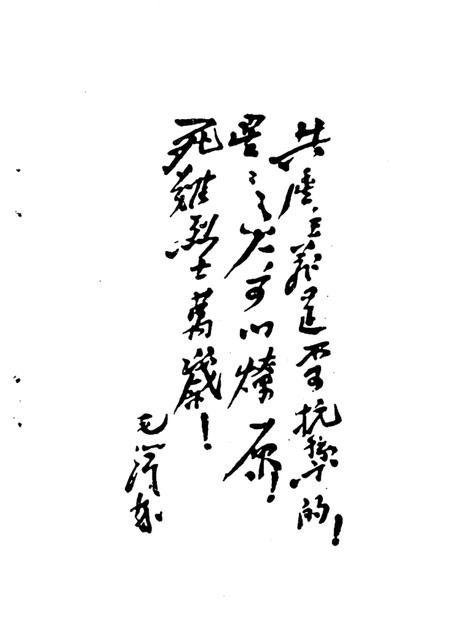 共產主義是不可抗禦的！
星々之火可以燎原！
死難烈士萬歲！
毛澤東